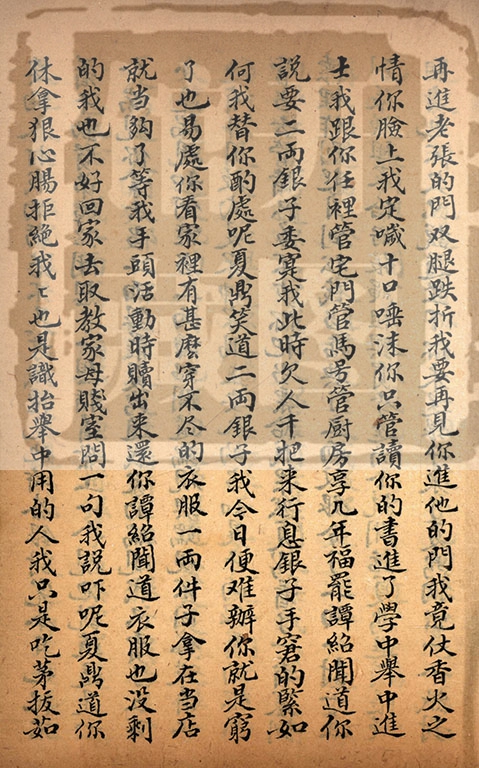 再進老張的門双腿跌折我要再見你進他的門我竟仗香火之
情你臉上我定喊十口唾沫你只管讀你的書進了學中舉中進
士我跟你任裡管宅門管馬号管廚房享几年福罷譚紹聞道你
說要二両銀子委寔我此時欠人千把来行息銀子手窘的緊如
何我替你酌處呢夏鼎笑道二両銀子我今日便难辦你就是窮
了也易處你看家裡有甚麽穿不尽的衣服一両件子拿在当店
就当鈎了等我手頭活動時贖出来還你譚紹聞道衣服也没剩
的我也不好回家去取教家母賤室問一句我說吓呢夏鼎道你
休拿狠心腸拒絕我〻也是識抬舉中用的人我只是吃茅拔茹